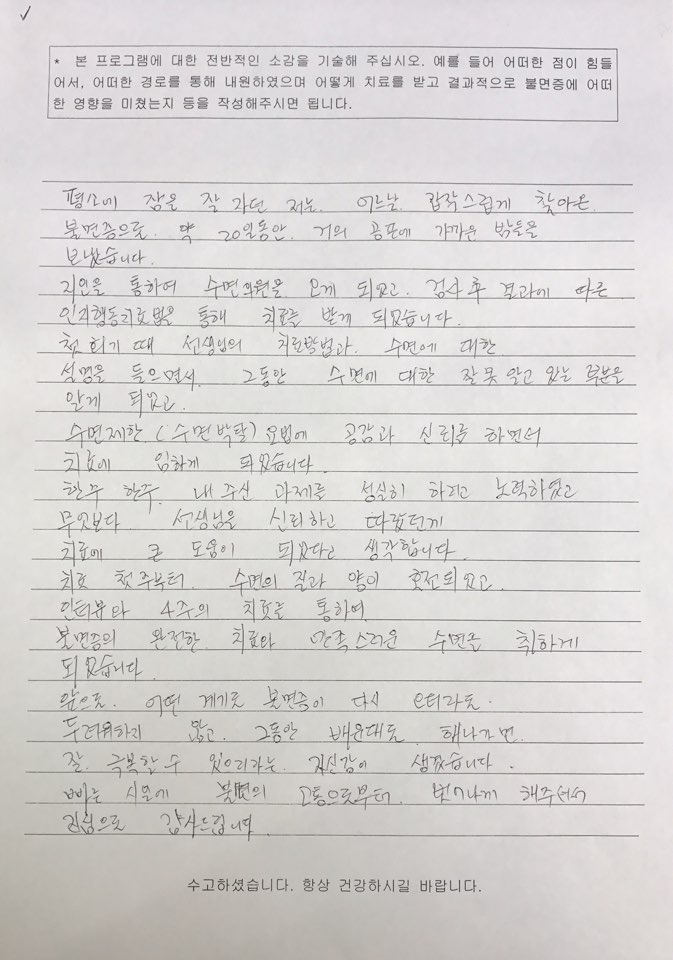 * 본 프로그램에 대한 전반적인 소감을 기술해 주십시오. 예를 들어 어떠한 점이 힘들
어서, 어떠한 경로를 통해 내원하였으며 어떻게 치료를 받고 결과적으로 불면증에 어떠
한 영향을 미쳤는지 등을 작성해주시면 됩니다.
평소에 잠을 잘 자던 저는. 어느날. 갑작스럽게 찾아온.
불면증으로. 약 20일동안. 거의 공포에 가까운 밤들을
보냈습니다.
지인을 통하여 수면의원을 오게 되었고. 검사후 결과에 따른.
인지행동치료법을 통해 치료를 받게 되었습니다.
첫 회기 때 선생님의 치료방법과. 수면에 대한
설명을 들으면서. 그동안 수면에 대한 잘못 알고 있는 부분을
알게 되었고.
수면제한(수면박탈)요법에 공감과 신뢰를 하면서
치료에 임하게 되었습니다.
한주 한주. 내주신 과제를 성실히 하려고 노력하였고
무엇보다 선생님을 신뢰하고 따랐던게
치료에 큰 도움이 되었다고 생각합니다.
치료 첫주부터. 수면의 질과 양이 호전되었고.
인터뷰와 4주의 치료를 통하여.
불면증의 완전한 치료와 만족스러운 수면을 취하게
되었습니다.
앞으로. 어떤 계기로 불면증이 다시 오더라도.
두려워하지 않고. 그동안 배운대로. 해나가면.
잘. 극복할 수 있으리라는. 자신감이 생겼습니다.
빠른 시일에 불면의 고통으로부터. 벗어나게 해주셔서
진심으로 감사드립니다.
수고하셨습니다. 항상 건강하시길 바랍니다.